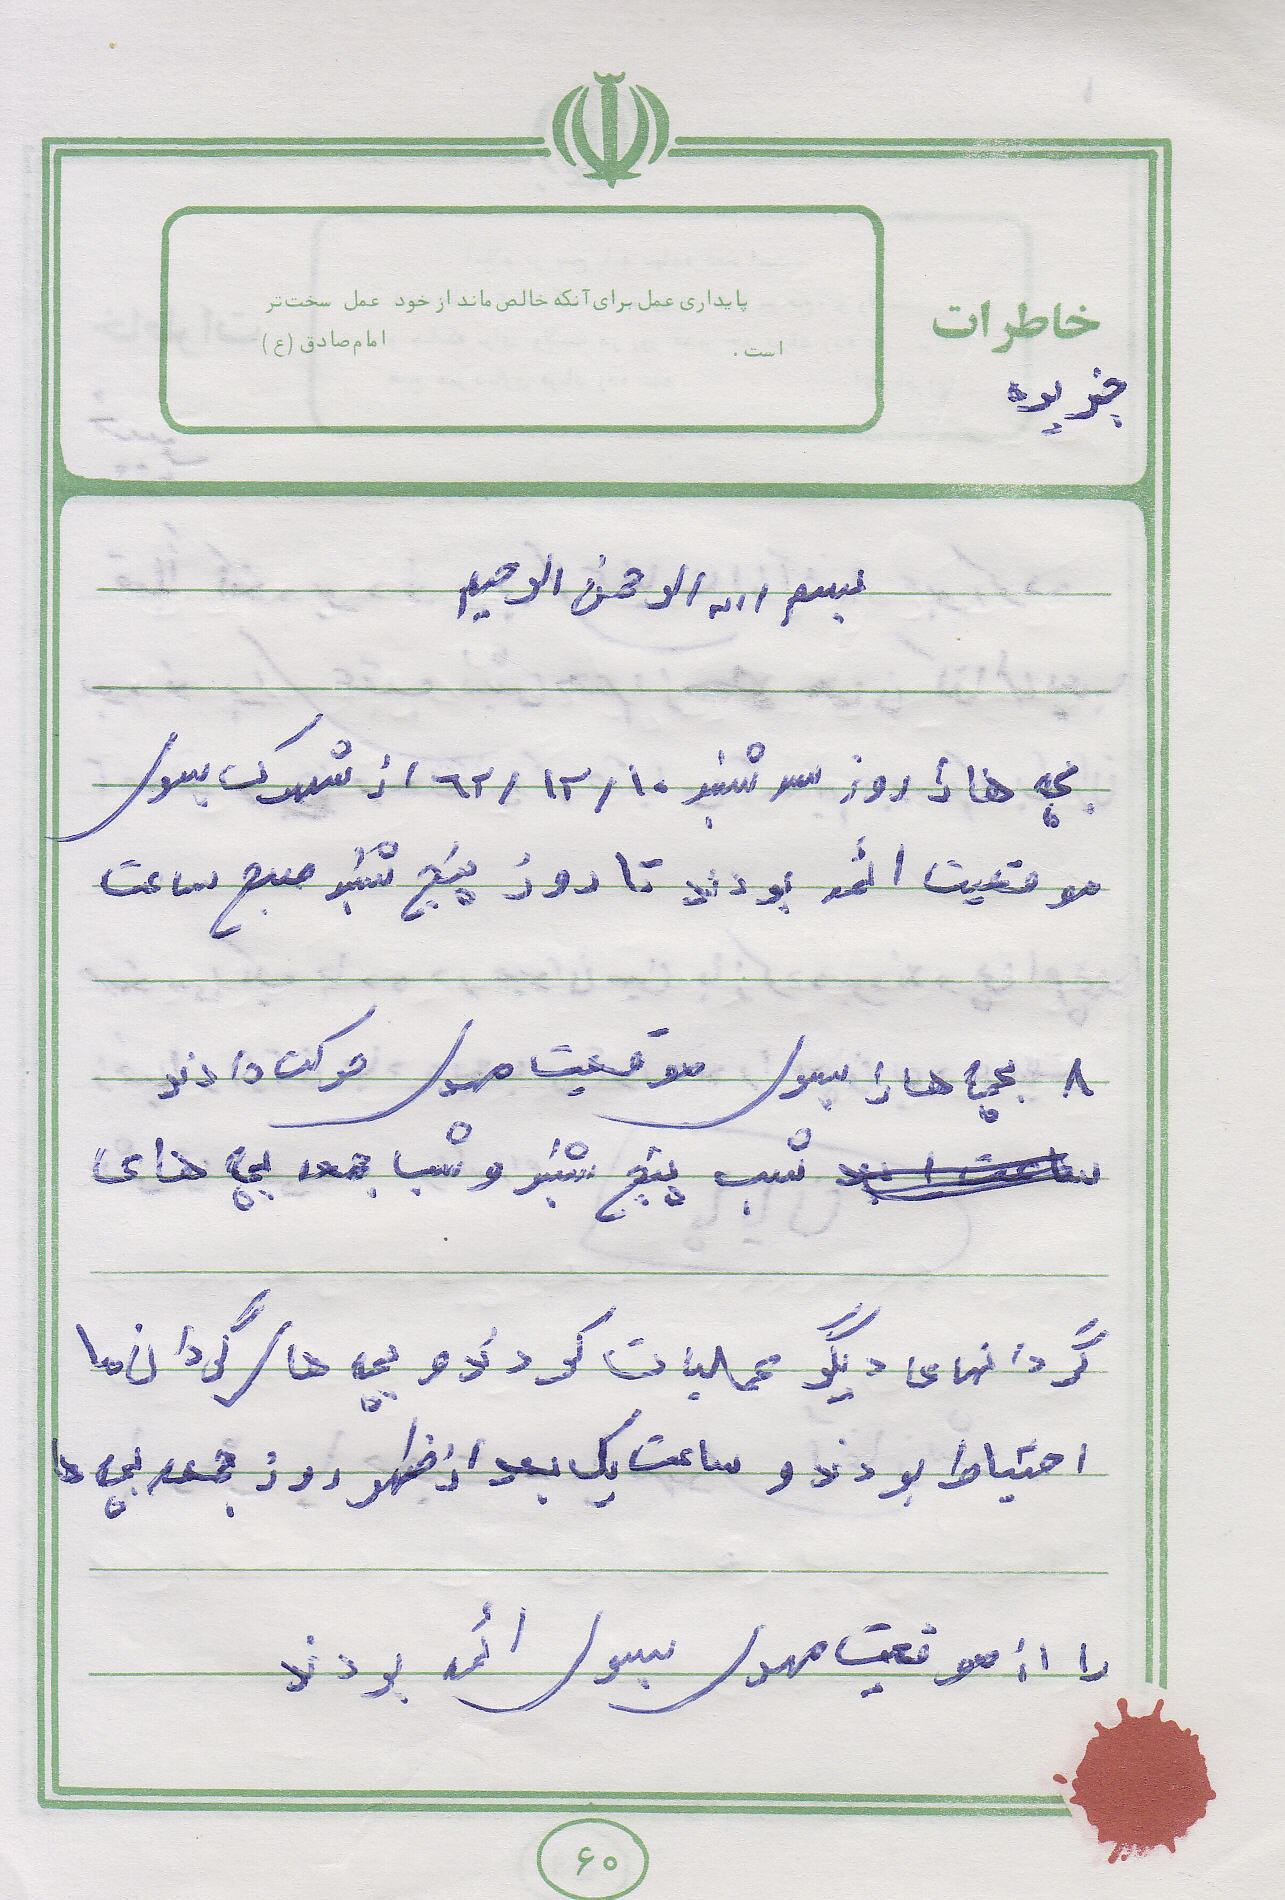 خاطرات
پایداری عمل برای آنکه خالص ماند از خود عمل سخت‌تر
است. امام صادق (ع)
بسم الله الرحمن الرحیم
بچه ها را روز سه شنبه ۶۲/۱۲/۱۰ از شهرک بسوی
موقعیت ائمه بودند تا روز پنج شنبه صبح ساعت
۸ بچه ها را بسوی موقعیت مهدی حرکت دادند
شب پنج شنبه و شب جمعه بچه های
گردانهای دیگر عملیات کردند و بچه های گردان ما
احتیاط بودند و ساعت یک بعد از ظهر روز جمعه بچه ها
را از موقعیت مهدی بسوی ائمه بودند
۶۰